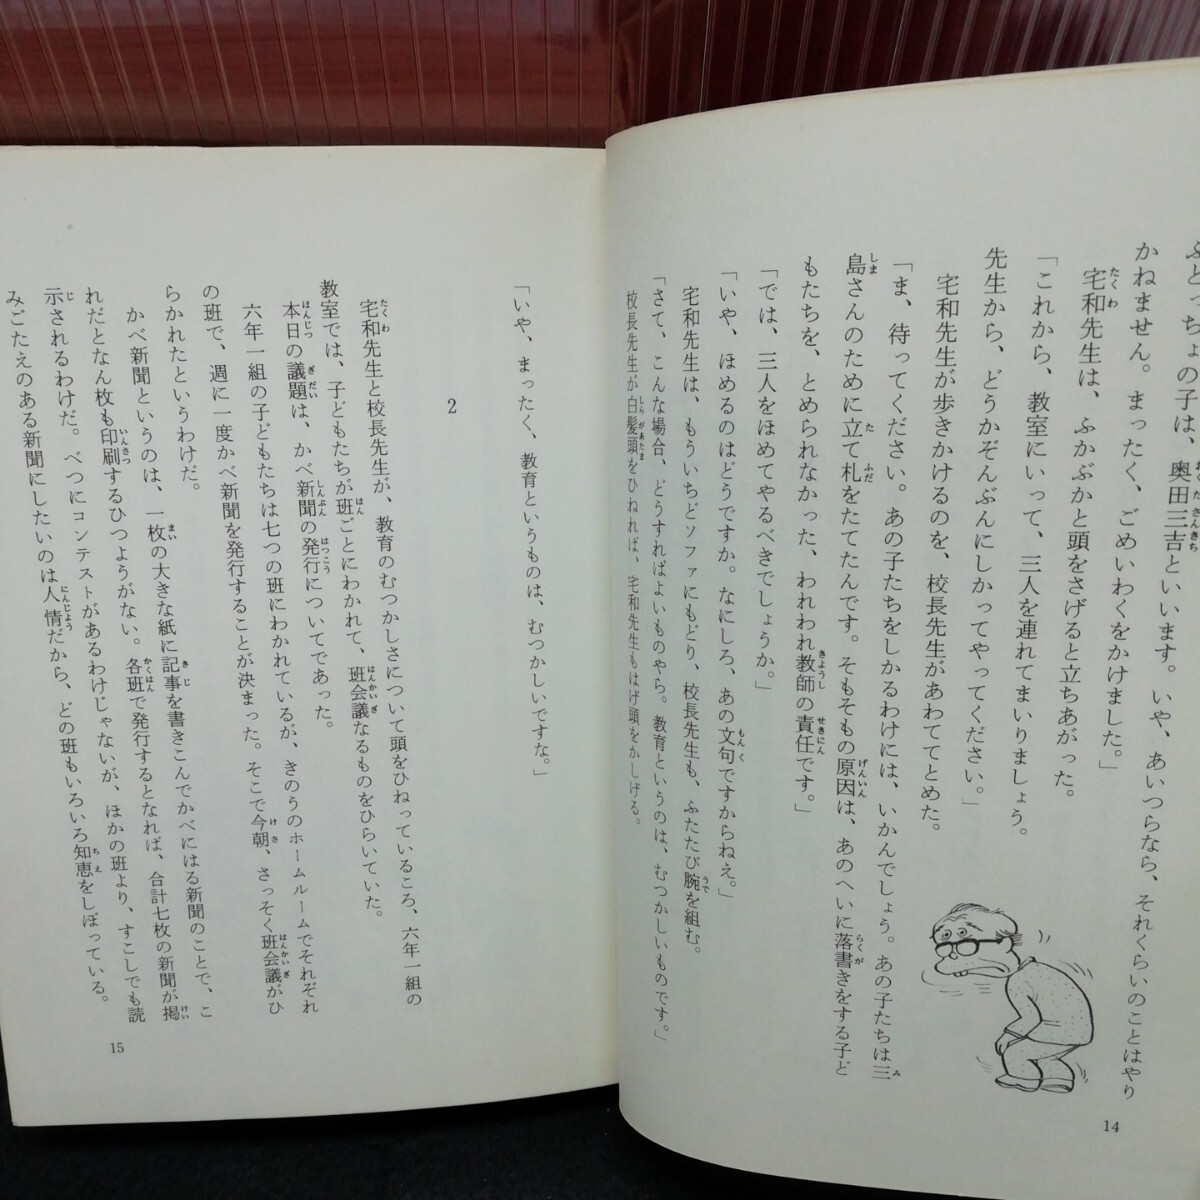 ふとっちょの子は、奥田三吉といいます。いや、あいつらなら、それくらいのことはやり
かねません。まったく、ごめいわくをかけました。」
宅和先生は、ふかぶかと頭をさげると立ちあがった。
「これから、教室にいって、三人を連れてまいりましょう。
先生から、どうかぞんぶんにしかってやってください。」
宅和先生が歩きかけるのを、校長先生があわててとめた。
「ま、待ってください。あの子たちをしかるわけには、いかんでしょう。あの子たちは三
島さんのために立て札をたてたんです。そもそもの原因は、あのへいに落書きをする子ど
もたちを、とめられなかった、われわれ教師の責任です。」
「では、三人をほめてやるべきでしょうか。」
「いや、ほめるのはどうですか。なにしろ、あの文句ですからねえ。」
宅和先生は、もういちどソファにもどり、校長先生も、ふたたび腕を組む。
「さて、こんな場合、どうすればよいものやら。教育というのは、むつかしいものです。」
校長先生が白髪頭をひねれば、宅和先生もはげ頭をかしげる。
14
「いや、まったく、教育というものは、むつかしいですな。」
2
宅和先生と校長先生が、教育のむつかしさについて頭をひねっているころ、六年一組の
教室では、子どもたちが班ごとにわかれて、班会議なるものをひらいていた。
本日の議題は、かべ新聞の発行についてであった。
六年一組の子どもたちは七つの班にわかれているが、きのうのホームルームでそれぞれ
の班で、週に一度かべ新聞を発行することが決まった。そこで今朝、さっそく班会議がひ
らかれたというわけだ。
かべ新聞というのは、一枚の大きな紙に記事を書きこんでかべにはる新聞のことで、こ
れだとなん枚も印刷するひつようがない。各班で発行するとなれば、合計七枚の新聞が掲
示されるわけだ。べつにコンテストがあるわけじゃないが、ほかの班より、すこしでも読
みごたえのある新聞にしたいのは人情だから、どの班もいろいろ知恵をしぼっている。
15